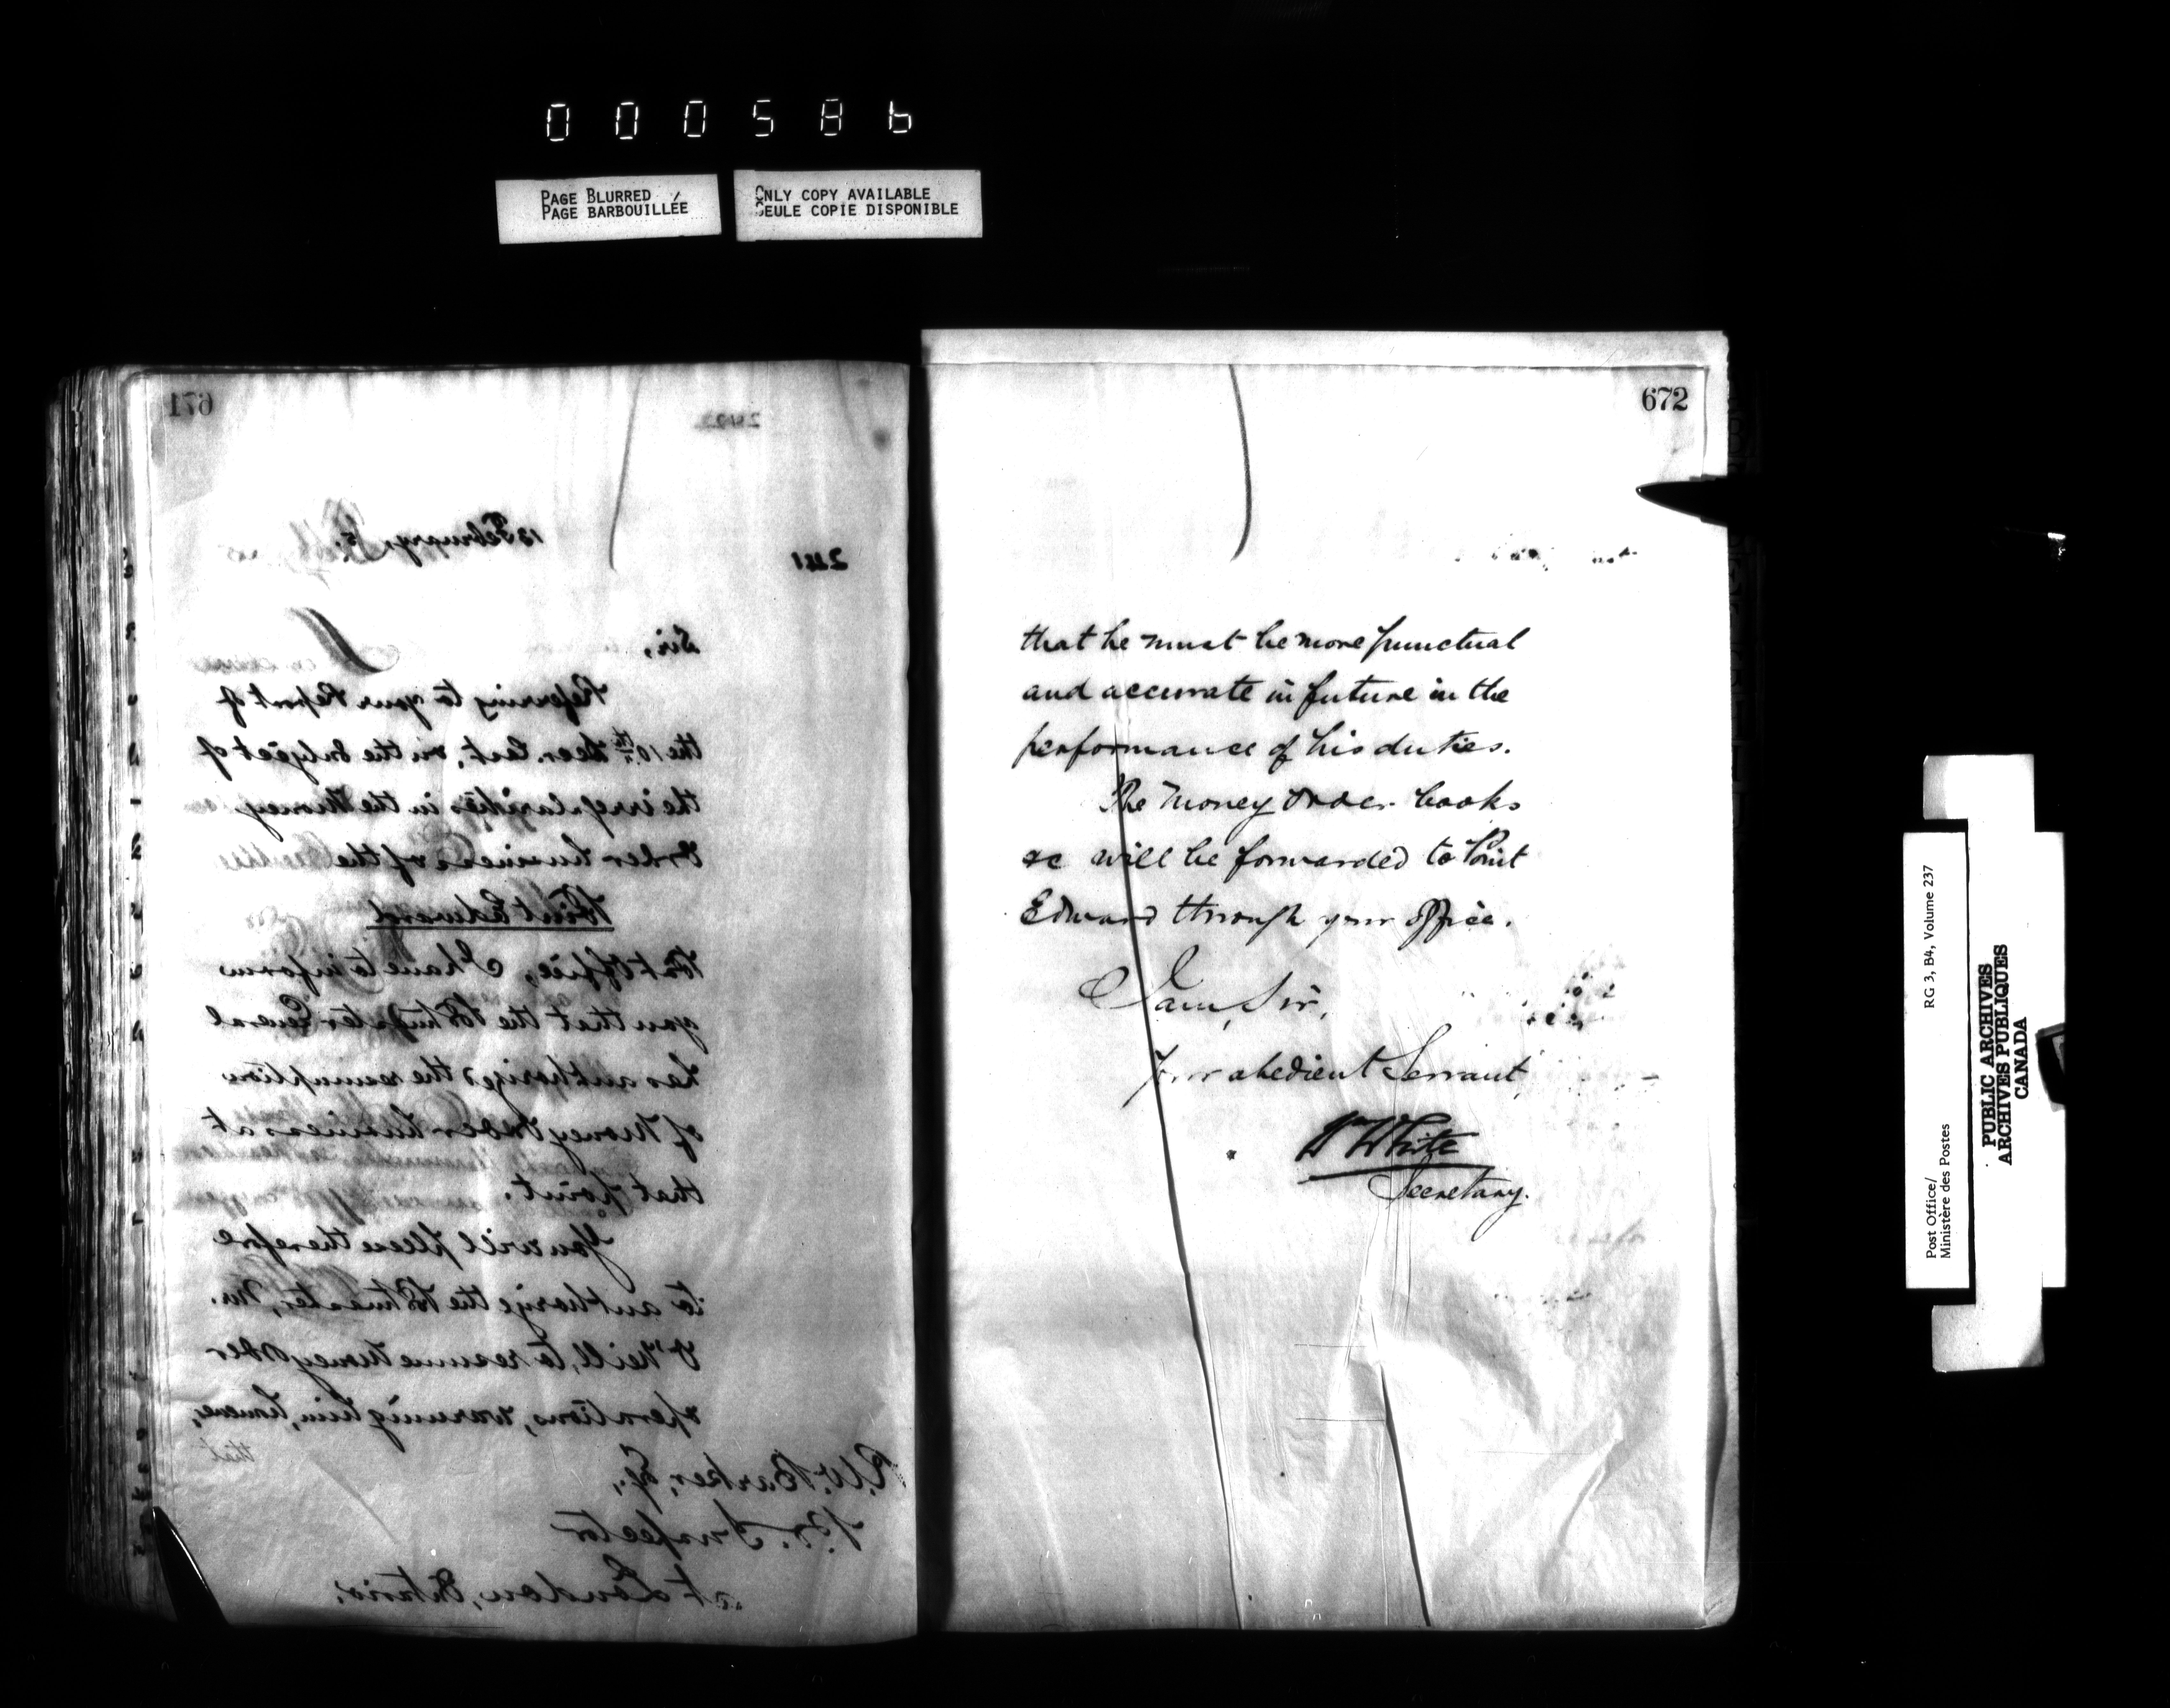 000586
PAGE BLURRED
PAGE BARBOUILLÉE
ONLY COPY AVAILABLE
SEULE COPIE DISPONIBLE
671
241
13 February, 5.
Sir,
Referring to your Report of
the 10th Decr. last, on the subject of
the irregularities in the Money
Order business of the
Point Edward
Post Office, I have to inform
you that the Postmaster General
has authorized the resumption
of Money Order business at
that point.
You will please therefore
to authorize the Postmaster, Mr.
O'Neill, to resume Money Order
operations, warning him, however,
that
R.W. Barker, Esq.,
P.O. Inspector
at London, Ontario.
672
that he must be more punctual
and accurate in future in the
performance of his duties.
The Money Order books
&c will be forwarded to Point
Edward through your office.
I am, Sir,
Your obedient Servant
Wm White
Secretary.
Post Office/
Ministère des Postes
RG 3, B4, Volume 237
PUBLIC ARCHIVES
ARCHIVES PUBLIQUES
CANADA